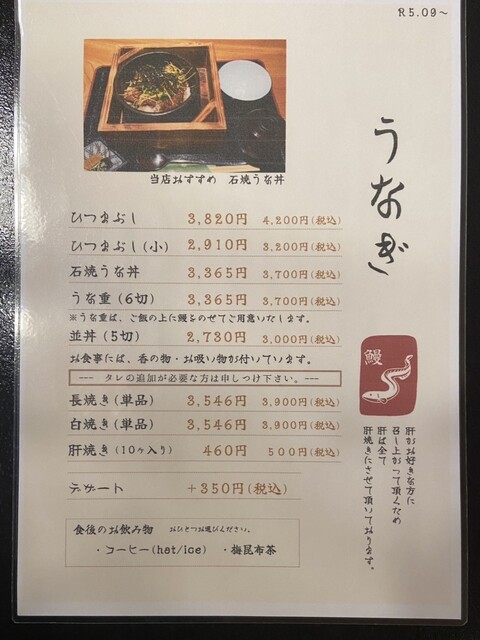 R5.09～
うなぎ
当店おすすめ 石焼うな丼
ひつまぶし 3,820円 4,200円(税込)
ひつまぶし(小) 2,910円 3,200円(税込)
石焼うな丼 3,365円 3,700円(税込)
うな重(6切) 3,365円 3,700円(税込)
※うな重は、ご飯の上に鰻をのせてご用意いたします。
並丼(5切) 2,730円 3,000円(税込)
お食事には、香の物・お吸い物が付いています。
--- タレの追加が必要な方は申しつけ下さい。---
長焼き(単品) 3,546円 3,900円(税込)
白焼き(単品) 3,546円 3,900円(税込)
肝焼き(10ヶ入り) 460円 500円(税込)
デザート +350円(税込)
食後のお飲み物 おひとつお選びください。
・コーヒー(hot/ice) ・梅昆布茶
鰻
肝がお好きな方に
召し上がって頂くため
肝は全て
肝焼きにさせて頂いております。